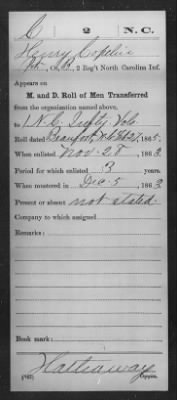 C 2 N.C.
Henry Copelin
Co. 2 Reg't North Carolina Inf.
Appears on
M. and D. Roll of Men Transferred
from the organization named above,
to N.C. Infty Vols
Roll dated Beaufort, N.C. Feb 27, 1865.
When enlisted Nov. 28, 1863
Period for which enlisted 3 years.
When mustered in Dec. 5, 1863
Present or absent not stated.
Company to which assigned
Remarks:
Book mark:
Hathaway
Copyist.